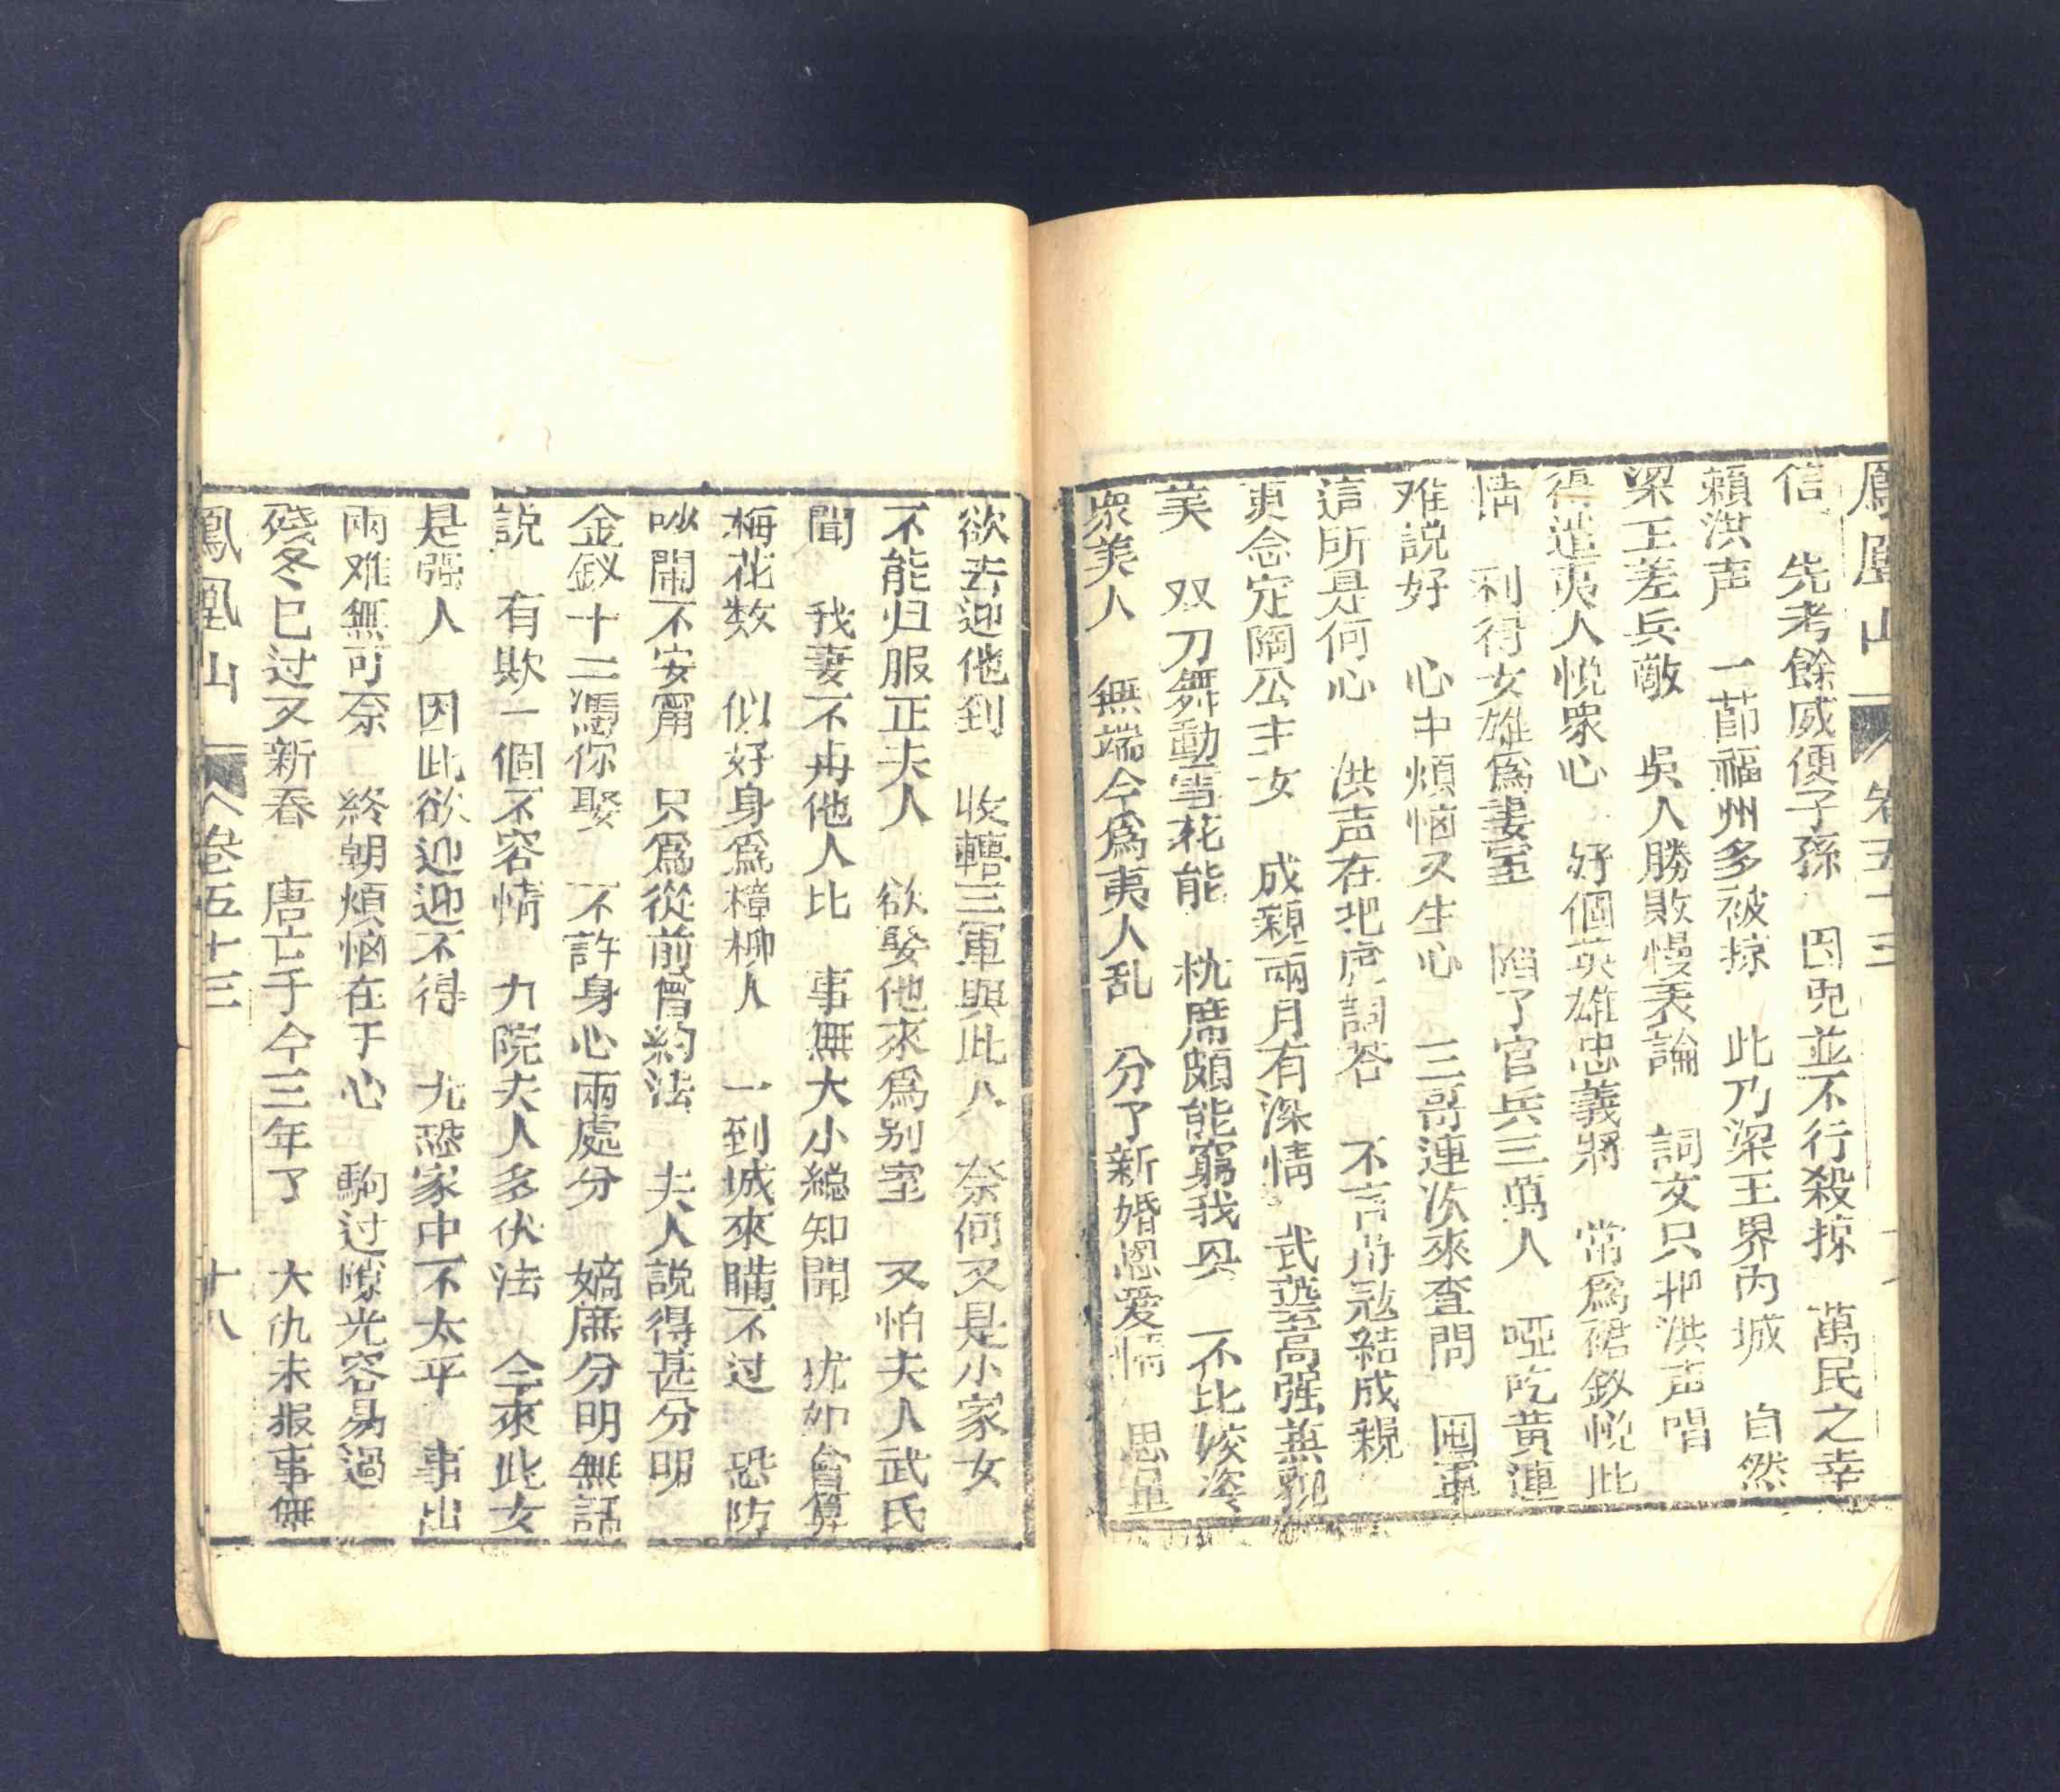 鳳凰山 卷五十三
信 先考餘威便子孫 因此並不行殺掠 萬民之幸
賴洪声 一節福州多被掠 此乃梁王界内城 自然
梁王差兵敵 吳人勝敗慢表論 詞文只把洪声唱
得遣夷人悦衆心 好個英雄忠義將 常爲裙釵悦此
情 利得女雄爲妻室 陷了官兵三萬人 啞吃黄連
难説好 心中煩恼又生心 三哥連次來查問 囤軍
這所是何心 洪声在把虎詞荅 不言歸寇結成親
更念定陶公主女 成親兩月有深情 武藝高强兼
美 双刀舞動雪花能 枕席頗能窮我 不比姣姿
衆美人 無端今爲夷人乱 分了新婚恩愛情 思量
欲去迎他到 收轄三軍與此人 奈何又是小家女
不能归服正夫人 欲娶他來爲别室 又怕夫人武氏
聞 我妻不冉他人比 事無大小総知聞 犹如會算
梅花数 似好身爲樟柳人 一到城來瞞不过 恐防
吵鬧不安甯 只爲從前曾約法 夫人説得甚分明
金釵十二凴你娶 不許身心兩處分 嫡庶分明無話
説 有欺一個不容情 九院夫人多伏法 今來此女
是强人 因此欲迎迎不得 尤恐家中不太平 事出
兩难無可奈 終朝煩恼在于心 駒过隙光容易過
殘冬已过又新春 唐亡于今三年了 大仇未报事無
鳳凰山 卷五十三 十八